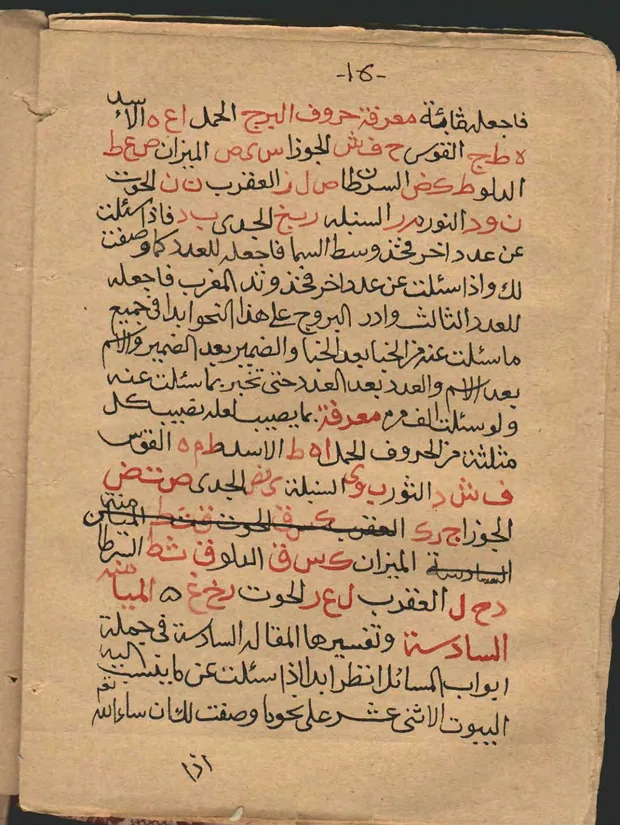 -١٤-
فاجعله بقائمة معرفة حروف البرج الحمل اع ه الاسد
ه ط ج القوس ح ف ش الجوزا س ى ص الميزان ص ع ط
الدلو ط ك ض السرطان ص ل ز العقرب ن ن الحوت
ن و د الثور ه ر ر السنبله ر ى خ الجدى ب د فاذا سئلت
عن عدد اخر فخذ وسط السما فاجعله للعدد كما وصفت
لك واذا سئلت عن عدد اخر فخذ وتد المغرب فاجعله
للعدد الثالث وادر البروج على هذا النحو ابدا فى جميع
ما سئلت عنه من الخبا بعد الخبا والضمير بعد الضمير والاسم
بعد الاسم والعدد بعد العدد حتى تخبر بما سئلت عنه
ولو سئلت الف مرم بما يصيب لعله نصيب كل معرفة
مثلثة من الحروف الحمل ا ه ط الاسد ط م ه القوس
ف ش د الثور ب و ى السنبلة الجدى ص ت ض
الجوزا ج ر ك العقرب ك س ق الحوت
السادسة الميزان ك س ق الدلو ق ث ظ السرطا
د ح ل العقرب ل ع ر الحوت ر خ غ ه الميا منه
السادسة وتفسيرها المقاله السادسة فى جملة
ابواب المسائل انظر ابدا اذا سئلت عن ما ينسب اليه
البيوت الاثنى عشر على نحو ما وصفت لك ان شاء الله
اذا